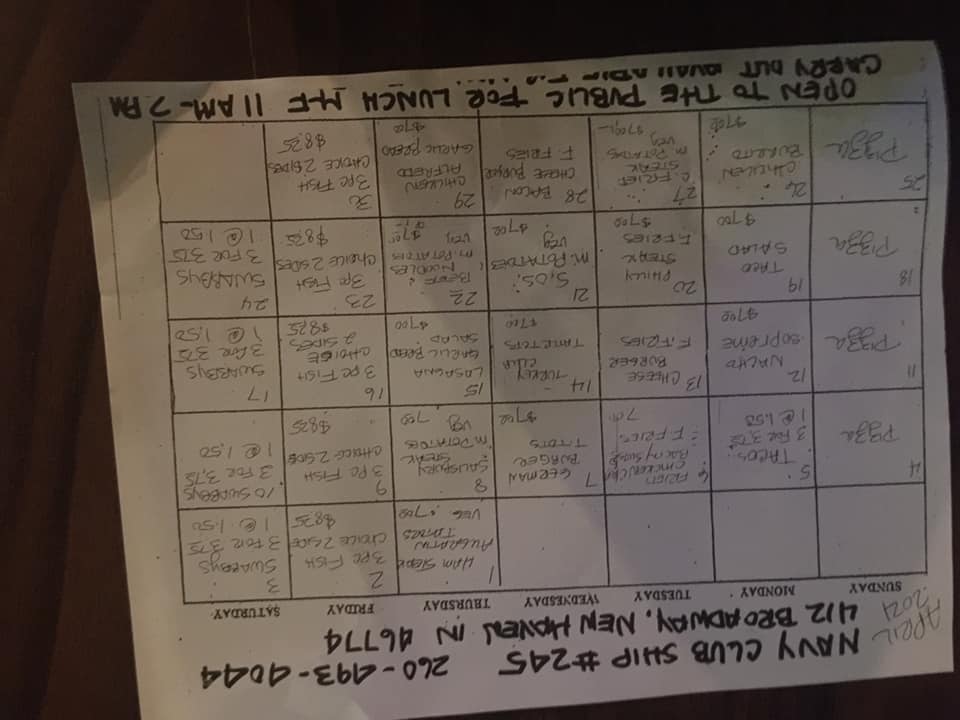 NAVY CLUB SHIP #245 260-493-4044
412 BROADWAY, NEW HAVEN IN 46774
APRIL
2021
SUNDAY MONDAY TUESDAY WEDNESDAY THURSDAY FRIDAY SATURDAY
1
HAM STEAK
AUGRATIN
TATORS
VEG. 700
2
3 PC FISH
CHOICE 2 SIDE
$825
3
SWARBYS
3 FOR 375
1 @ 1.50
4
Pizza
5
TACOS
3 FOR 3,75
1 @ 1.50
6
FRIED
CHICKEN
F. FRIES
700
7
GERMAN
BURGER
T TOTS
$700
8
SALISBURY
STEAK
M. POTATOES
VEG 700
9
3 PC FISH
CHOICE 2 SIDE
$825
10 SWARBYS
3 FOR 3,75
1 @ 1,50
11
Pizza
12
NACHO
SOPREME
$700
13 CHEESE
BURGER
F. FRIES
14
TURKEY
CLUB
TATERTOTS
$700
15
LASAGNA
GARLIC BREAD
SALAD
$700
16
3 PC FISH
CHOICE
2 SIDES
$825
17
SWARBYS
3 FOR 375
1 @ 1.50
18
Pizza
19
TACO
SALAD
$700
20
PHILLY
STEAK
F. FRIES
$700
21
S.O.S.
M. POTATOES
VEG
$700
22
BEEF &
NOODLES
M. POTATOES
VEG. $700
23
3 PC FISH
CHOICE 2 SIDES
$825
24
SWARBYS
3 FOR 375
1 @ 1.50
25
Pizza
26
CHICKEN
BURRITO
$700
27
C. FRIED
STEAK
M. POTATOS
VEG
$700
28 BACON
CHEESE BURGER
F. FRIES
29
CHICKEN
ALFREDO
GARLIC BREAD
$700
30
3 PC FISH
CHOICE 2 SIDES
$825
OPEN TO THE PUBLIC FOR LUNCH M-F 11 AM-2 PM
CARRY OUT AVAILABLE